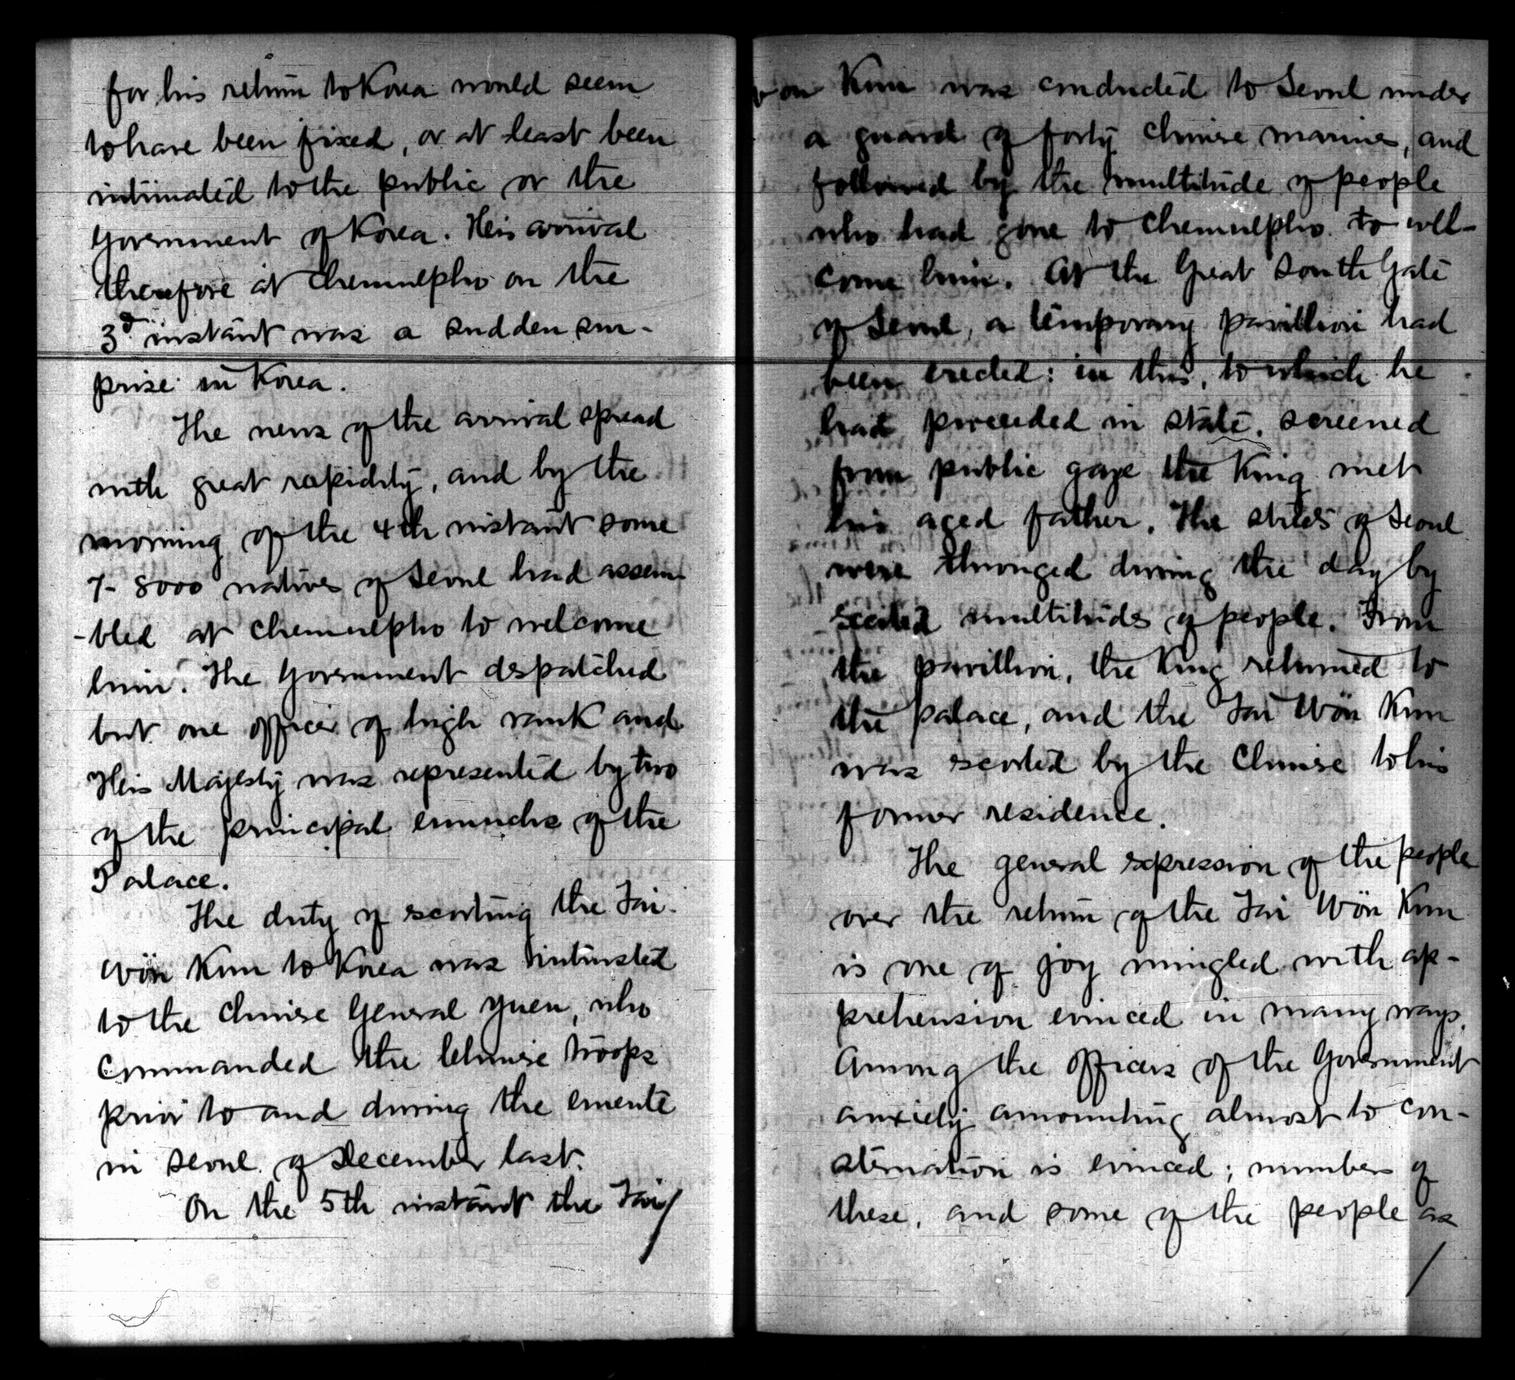 for his return to Korea would seem
to have been fixed, or at least been
intimated to the public or the
Government of Korea. His arrival
therefore at Chemulpho on the
3d instant was a sudden sur-
prise in Korea.
The news of the arrival spread
with great rapidity, and by the
morning of the 4th instant some
7-8000 natives of Seoul had assem-
-bled at Chemulpho to welcome
him. The Government dispatched
but one officer of high rank and
His Majesty was represented by two
of the principal eunuchs of the
Palace.
The duty of escorting the Tai-
Wön Kun to Korea was intrusted
to the Chinese General Yuen, who
commanded the Chinese troops
prior to and during the emeute
in Seoul of December last.
On the 5th instant the Tai
Wön Kun was conducted to Seoul under
a guard of forty Chinese marines, and
followed by the multitude of people
who had gone to Chemulpho to wel-
come him. At the Great South Gate
of Seoul, a temporary pavillion had
been erected: in this, to which he
had proceeded in state, screened
from public gaze the King met
his aged father. The streets of Seoul
were thronged during the day by
excited multitudes of people. From
the pavillion, the King returned to
the palace, and the Tai Wön Kun
was escorted by the Chinese to his
former residence.
The general expression of the people
over the return of the Tai Wön Kun
is one of joy mingled with ap-
prehension evinced in many ways.
Among the officers of the Government
anxiety amounting almost to con-
sternation is evinced; numbers of
these, and some of the people as